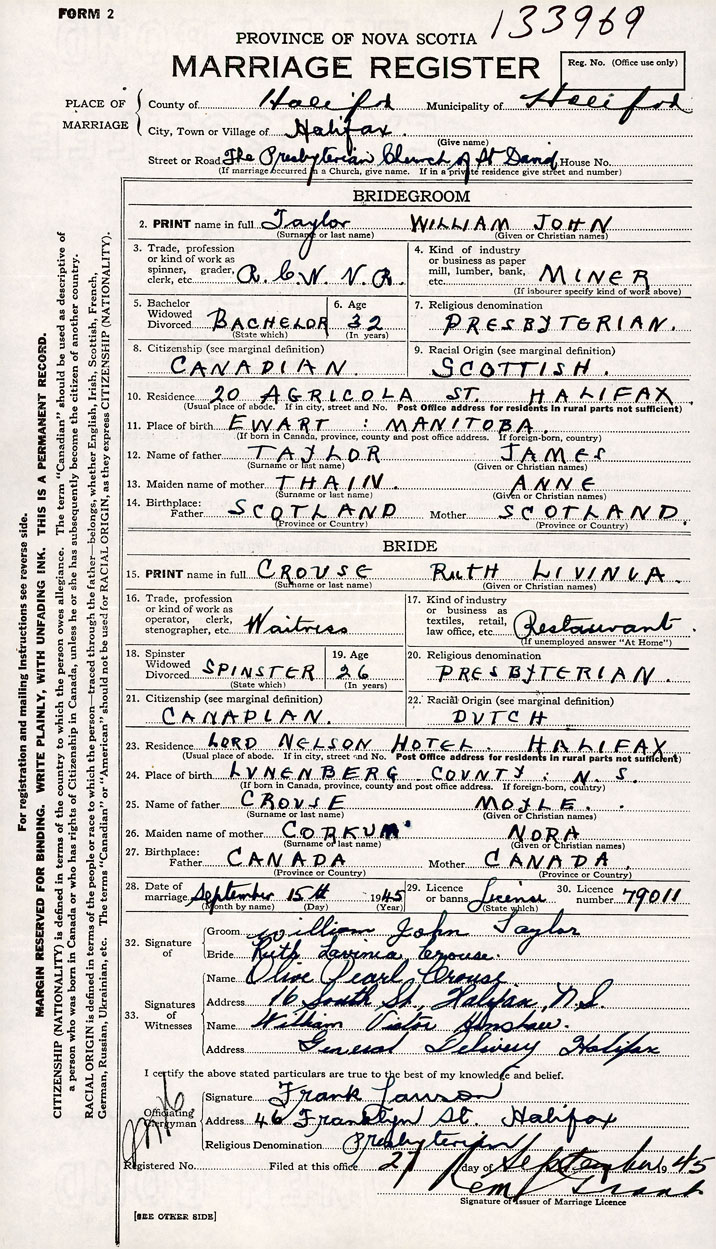 FORM 2
133969
PROVINCE OF NOVA SCOTIA
MARRIAGE REGISTER
Reg. No. (Office use only)
PLACE OF MARRIAGE
County of Halifax Municipality of Halifax
City, Town or Village of Halifax.
(Give name)
Street or Road The Presbyterian Church of St David House No.
(If marriage occurred in a Church, give name. If in a private residence give street and number)
BRIDEGROOM
2. PRINT name in full Taylor WILLIAM JOHN
(Surname or last name) (Given or Christian names)
3. Trade, profession or kind of work as spinner, grader, clerk, etc. R.C.N.V.R.
4. Kind of industry or business as paper mill, lumber, bank, etc. MINER
(If labourer specify kind of work above)
5. Bachelor Widowed Divorced BACHELOR (State which)
6. Age 32 (In years)
7. Religious denomination PRESBYTERIAN.
8. Citizenship (see marginal definition) CANADIAN.
9. Racial Origin (see marginal definition) SCOTTISH.
10. Residence 20 AGRICOLA ST. HALIFAX
(Usual place of abode. If in city, street and No. Post Office address for residents in rural parts not sufficient)
11. Place of birth EWART : MANITOBA.
(If born in Canada, province, county and post office address. If foreign-born, country)
12. Name of father TAYLOR JAMES
(Surname or last name) (Given or Christian names)
13. Maiden name of mother THAIN. ANNE
(Surname or last name) (Given or Christian names)
14. Birthplace: Father SCOTLAND Mother SCOTLAND.
(Province or Country) (Province or Country)
BRIDE
15. PRINT name in full CROUSE RUTH LIVINIA.
(Surname or last name) (Given or Christian names)
16. Trade, profession or kind of work as operator, clerk, stenographer, etc. Waitress
17. Kind of industry or business as textiles, retail, law office, etc. Restaurant.
(If unemployed answer "At Home")
18. Spinster Widowed Divorced SPINSTER (State which)
19. Age 26 (In years)
20. Religious denomination PRESBYTERIAN.
21. Citizenship (see marginal definition) CANADIAN.
22. Racial Origin (see marginal definition) DUTCH
23. Residence LORD NELSON HOTEL. HALIFAX
(Usual place of abode. If in city, street and No. Post Office address for residents in rural parts not sufficient)
24. Place of birth LUNENBERG COUNTY : N. S.
(If born in Canada, province, county and post office address. If foreign-born, country)
25. Name of father CROUSE MOYLE.
(Surname or last name) (Given or Christian names)
26. Maiden name of mother CORKUM NORA
(Surname or last name) (Given or Christian names)
27. Birthplace: Father CANADA Mother CANADA.
(Province or Country) (Province or Country)
28. Date of marriage September 15th 1945
(Month by name) (Day) (Year)
29. Licence or banns License (State which)
30. Licence number 79011
32. Signature of
Groom William John Taylor
Bride Ruth Lavinia Crouse.
33. Signatures of Witnesses
Name Olive Pearl Crouse
Address 16 South St, Halifax, N.S.
Name William Victor
Address General Delivery Halifax
I certify the above stated particulars are true to the best of my knowledge and belief.
Officiating Clergyman
Signature Frank Lawson
Address 46 Franklyn St Halifax
Religious Denomination Presbyterian
Registered No. Filed at this office 27 day of September 1945
Grant
Signature of Issuer of Marriage Licence
[SEE OTHER SIDE]
For registration and mailing Instructions see reverse side.
MARGIN RESERVED FOR BINDING. WRITE PLAINLY, WITH UNFADING INK. THIS IS A PERMANENT RECORD.
CITIZENSHIP (NATIONALITY) is defined in terms of the country to which the person owes allegiance. The term "Canadian" should be used as descriptive of
a person who was born in Canada or who has rights of Citizenship in Canada, unless he or she has subsequently become the citizen of another country.
RACIAL ORIGIN is defined in terms of the people or race to which the person—traced through the father—belongs, whether English, Irish, Scottish, French,
German, Russian, Ukrainian, etc. The terms "Canadian" or "American" should not be used for RACIAL ORIGIN, as they express CITIZENSHIP (NATIONALITY).